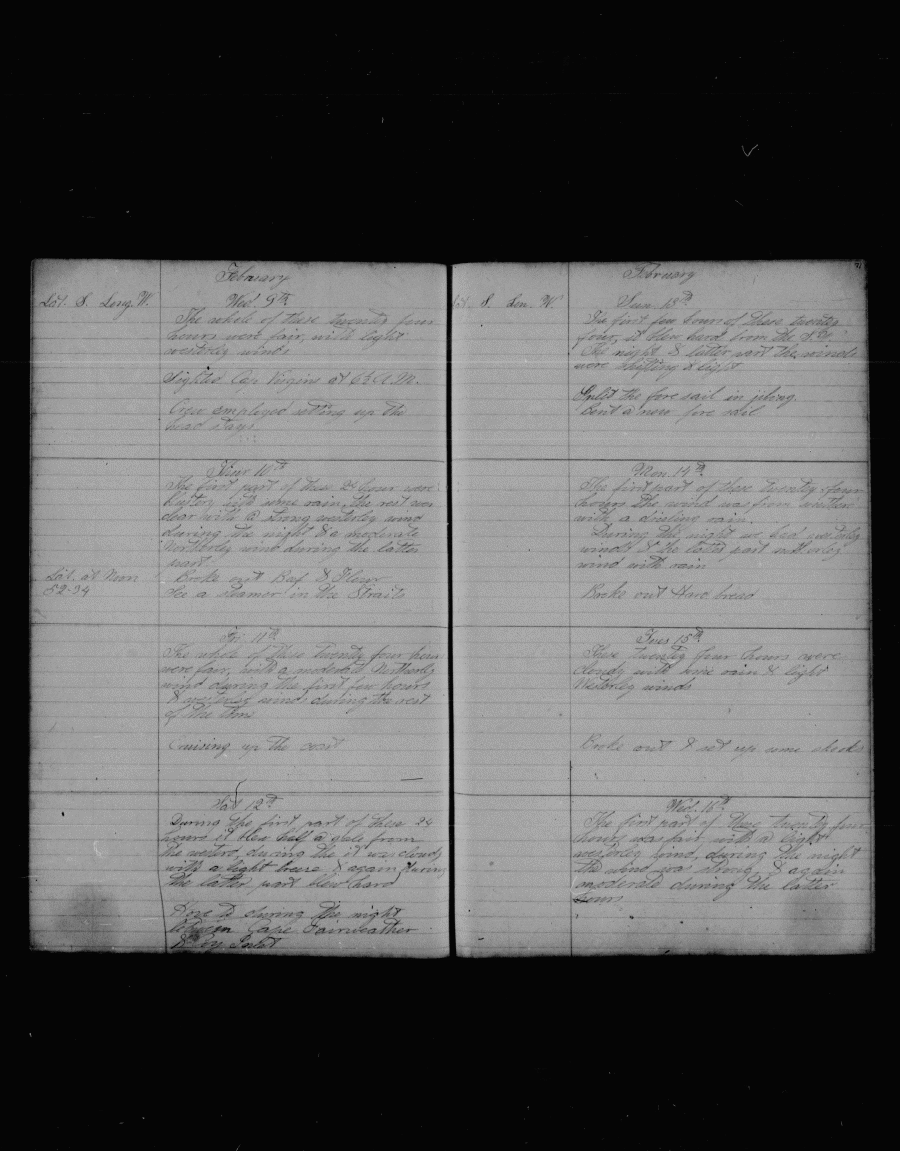 February
Lat. S. Long. W.
Wed. 9th
The whole of these twenty four
hours were fair, with light
westerly winds
Sighted Cap Virgins at 6½ A.M.
Crew employed setting up the
head stays.
Thur 10th
The first part of these 24 hour were
blustery with some rain, the rest was
clear with a strong westerly wind
during the night & a moderate
Northerly wind during the latter
part.
Lat. at Noon
52-34
Broke out Beef & Flour
See a steamer in the Straits
Fri. 11th
The whole of these twenty four hour
were fair, with a moderate Northerly
wind during the first few hours
& westerly winds during the rest
of the time
Cruising up the coast
Sat 12th
During the first part of these 24
hours it blew half a gale from
the westerd, during the it was cloudy
with a light breeze & again during
the latter part blew hard
Hove to during the night
between Cape Fairweather
& Coy Inlet
February
Lat. S. Lon. W.
Sun. 13th
The first few hours of these twenty
four, it blew hard from the
The night & latter part the winds
were shifting & light
Split the fore sail in jibing
Bent a new fore sail
Mon. 14th
The first part of these twenty four
hours the wind was from
with a drizling rain.
During the night we had westerly
winds & the latter part northerly
wind with rain
Broke out Hard bread
Tues 15th
These twenty four hours were
cloudy with some rain & light
Westerly winds
Broke out & set up some shooks
Wed. 16th
The first part of these twenty four
hours was fair with a light
westerly wind, during the night
the wind was strong & again
moderate during the latter
hours